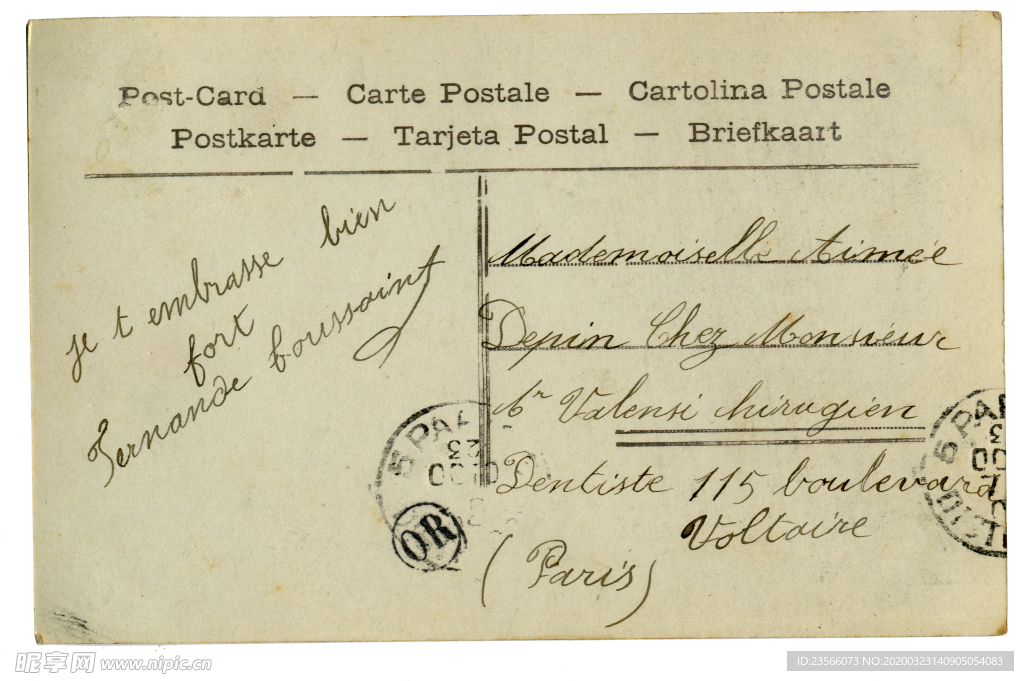 Post-Card — Carte Postale — Cartolina Postale
Postkarte — Tarjeta Postal — Briefkaart
je t embrasse bien
fort
Fernande boussoint
Mademoiselle Aimée
Depin Chez Monsieur
Valensi chirugien
Dentiste 115 boulevard
Voltaire
(Paris)
5 PA
OR
5 PA
昵享网 www.nipic.cn
ID:23566073 NO:20200323140905054083